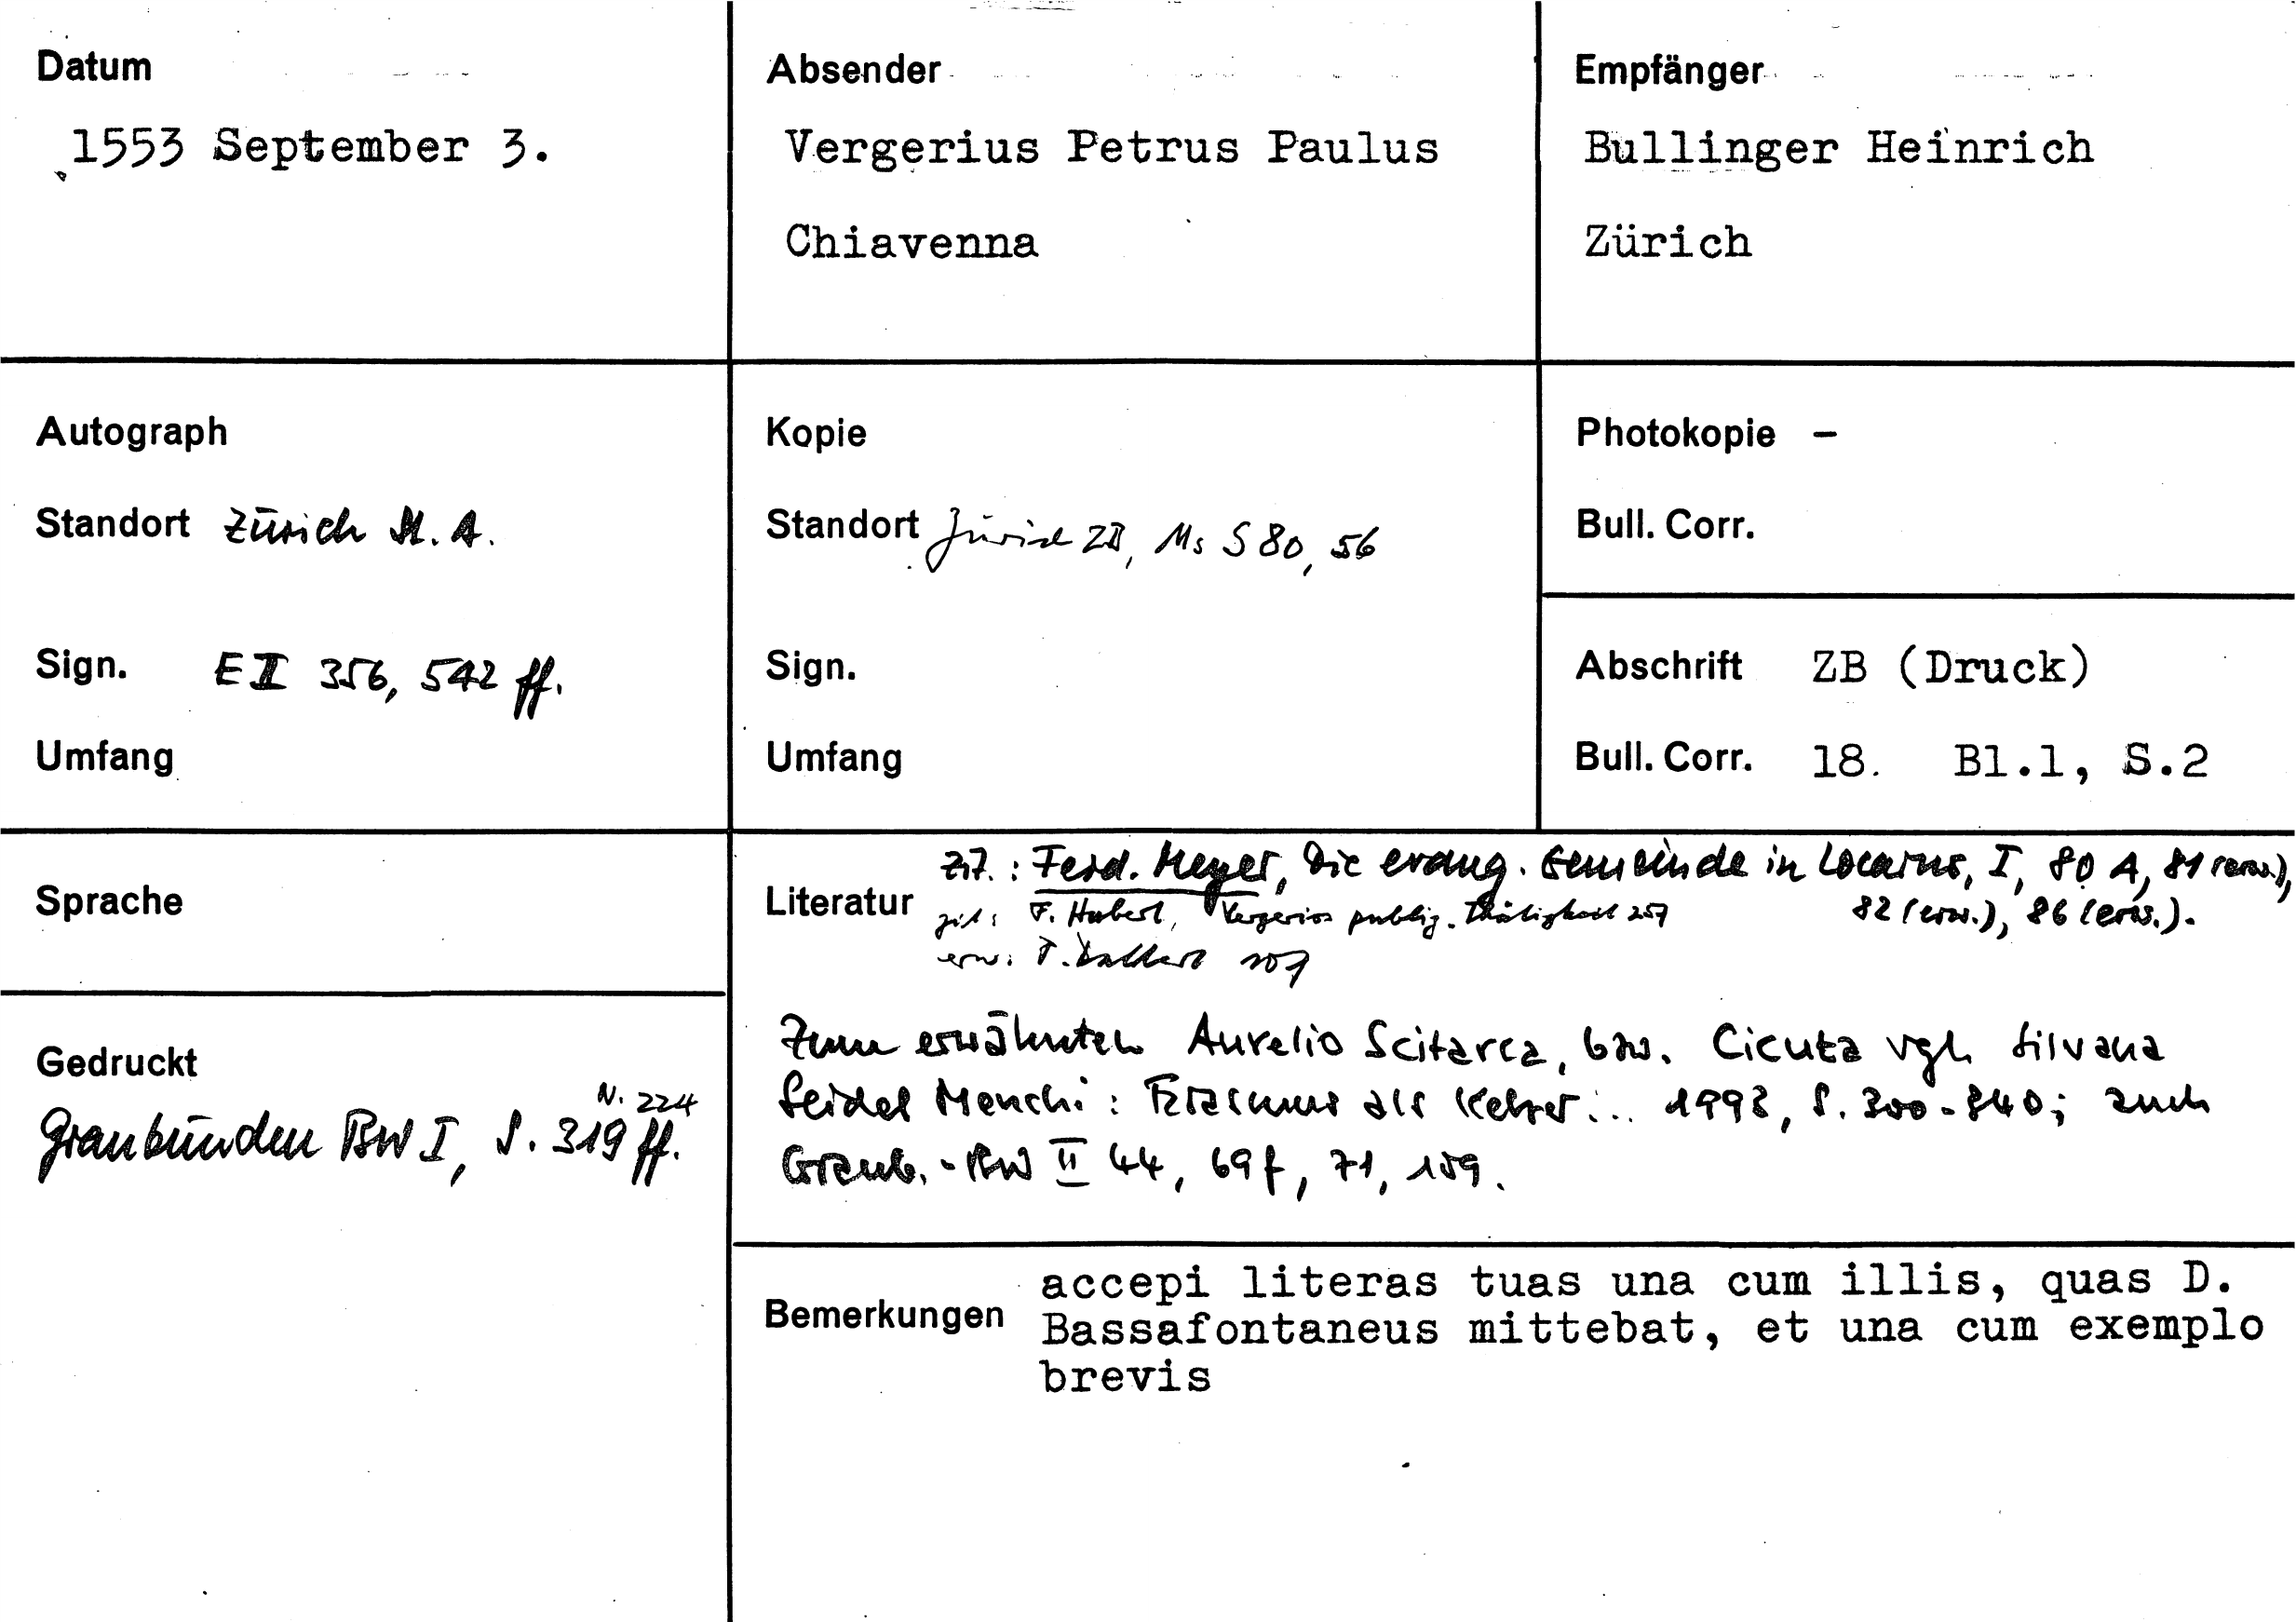 Datum
1553 September 3.
Absender
Vergerius Petrus Paulus
Chiavenna
Empfänger
Bullinger Heinrich
Zürich
Autograph
Standort Zürich St. A.
Sign. E II 356, 542 ff.
Umfang
Kopie
Standort Zürich ZB, Ms S 80, 56
Sign.
Umfang
Photokopie –
Bull. Corr.
Abschrift ZB (Druck)
Bull. Corr. 18. Bl.1, S.2
Sprache
Gedruckt
N. 224
Graubünden BW I, S. 319 ff.
Literatur
Zit.: Ferd. Meyer, Die evang. Gemeinde in Locarno, I, 80 A, 81 (erw.),
82 (erw.), 86 (erw.).
zit: F. Hubert, Vergerios publiz. Thätigkeit 257
erw: T. 107
Zum erwähnten Aurelio Scitarca, bzw. Cicuta vgl. Silvana
Seidel Menchi: Erasmus als Ketzer... 1993, S. 300-340; auch
Graub.-BW II 44, 69f, 71, 159.
Bemerkungen
accepi literas tuas una cum illis, quas D.
Bassafontaneus mittebat, et una cum exemplo
brevis